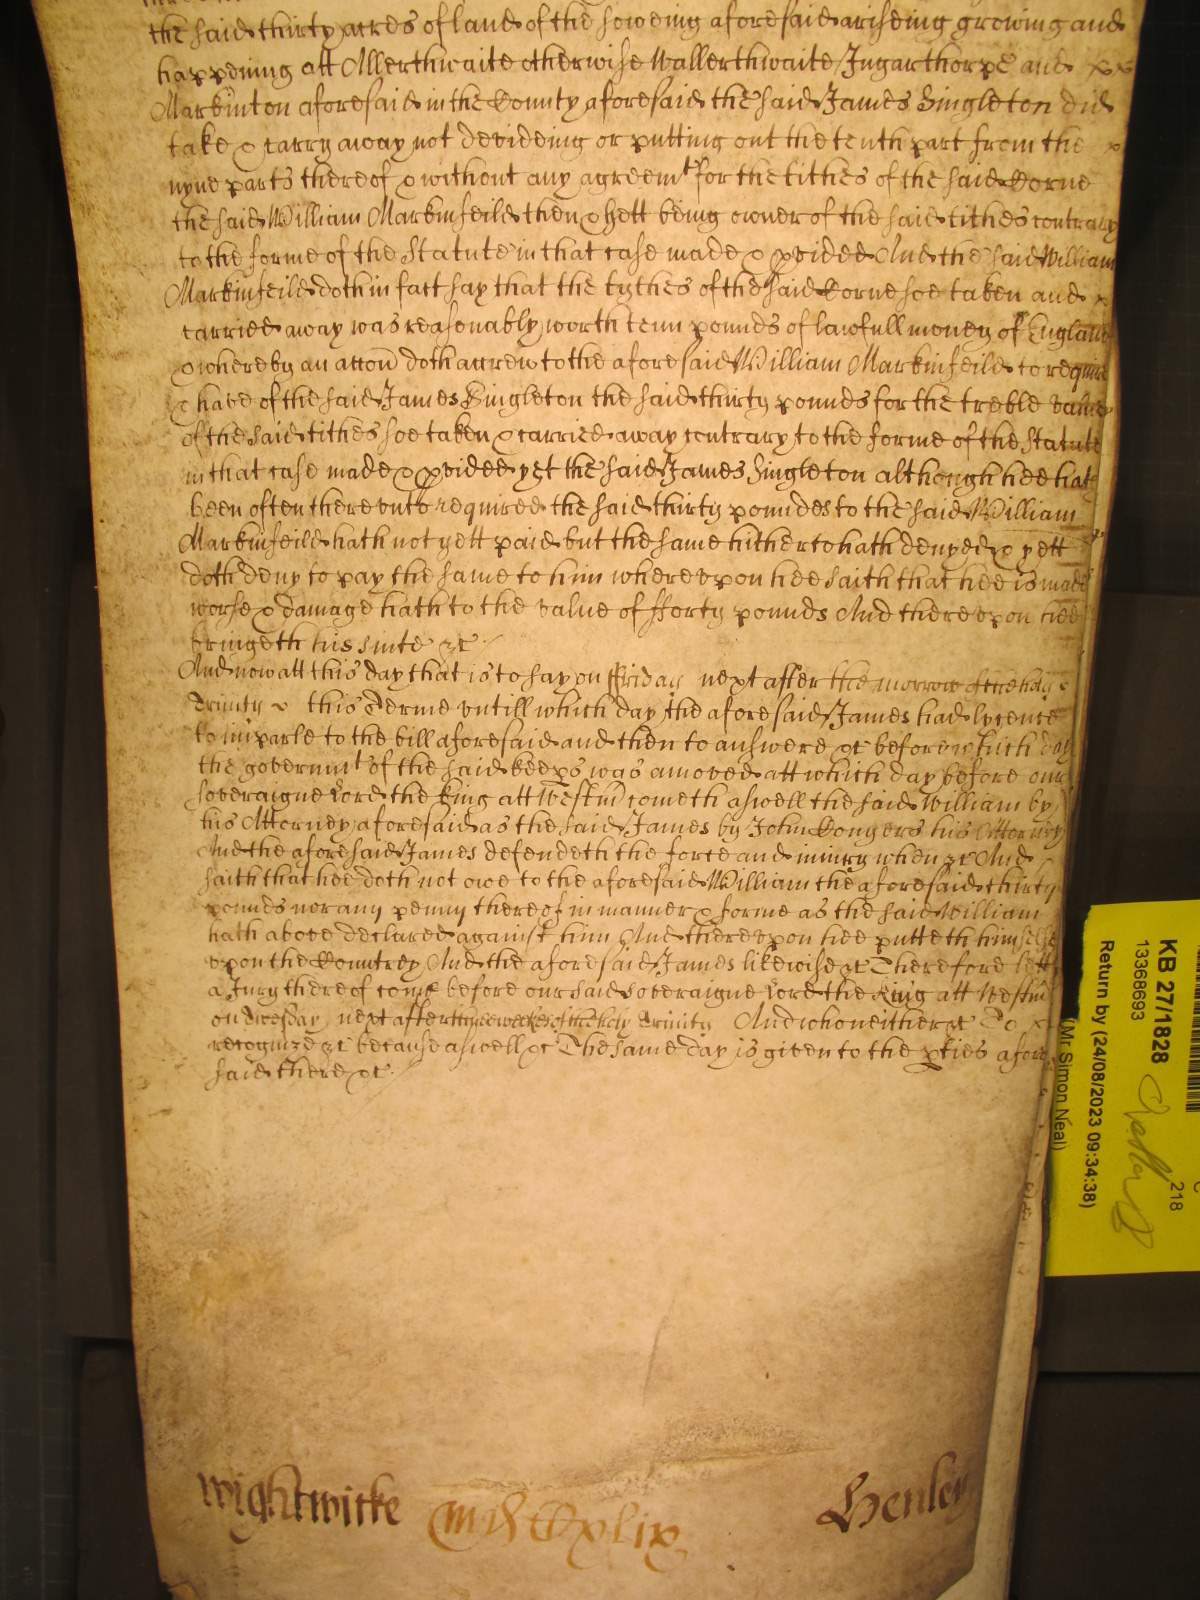 the said thirty acres of land of the soweing aforesaid ariseing growing and
happening att Allerthwaite otherwise Wallerthwaite Ingarthorpe and
Markinton aforesaid in the County aforesaid the said James Singleton did
take & carry away not devideing or putting out the tenth part from the
nyne parts thereof & without any agreemt for the tithes of the said Corne
the said William Markinfeild then & yett being owner of the said tithes contrary
to the forme of the Statute in that case made & pvided And the said William
Markinfeild doth in fact say that the tythes of the said Corne soe taken and
carried away was reasonably worth tenn pounds of lawfull money of England
& whereby an accon doth accrew to the aforesaid William Markinfeild to require
& have of the said James Singleton the said thirty pounds for the treble value
of the said tithes soe taken & carried away contrary to the forme of the Statute
in that case made & pvided yet the said James Singleton although hee hath
been often thereunto required the said thirty poundes to the said William
Markinfeild hath not yett paid but the same hitherto hath denyed & yett
doth deny to pay the same to him whereupon hee saith that hee is made
worse & damage hath to the value of fforty pounds And thereupon hee
bringeth his suite &c
And now att this day that is to say on ffriday next after the morrow of the holy
Trinity this Terme untill which day the aforesaid James had lycence
to imparle to the bill aforesaid and then to answere &c before which day
the governmt of the said keeps was amoved att which day before our
soveraigne Lord the King att Westm cometh aswell the said William by
his Attorney aforesaid as the said James by John Congers his Attorney
And the aforesaid James defendeth the force and iniury when &c And
saith that hee doth not owe to the aforesaid William the aforesaid thirty
pounds nor any penny thereof in manner & forme as the said William
hath above declared against him And thereupon hee putteth himselfe
upon the Countrey And the aforesaid James likewise &c Therefore lett
a Jury thereof come before our said soveraigne Lord the King att Westm
on Tuesday next after three weekes of the holy Trinity And who neither &c To
recognize &c because aswell &c The same day is given to the pties afore
said there &c
Wightwicke
Henley
KB 27/1828
13368693
218
Return by (24/08/2023 09:34:38)
(Mr. Simon Neal)